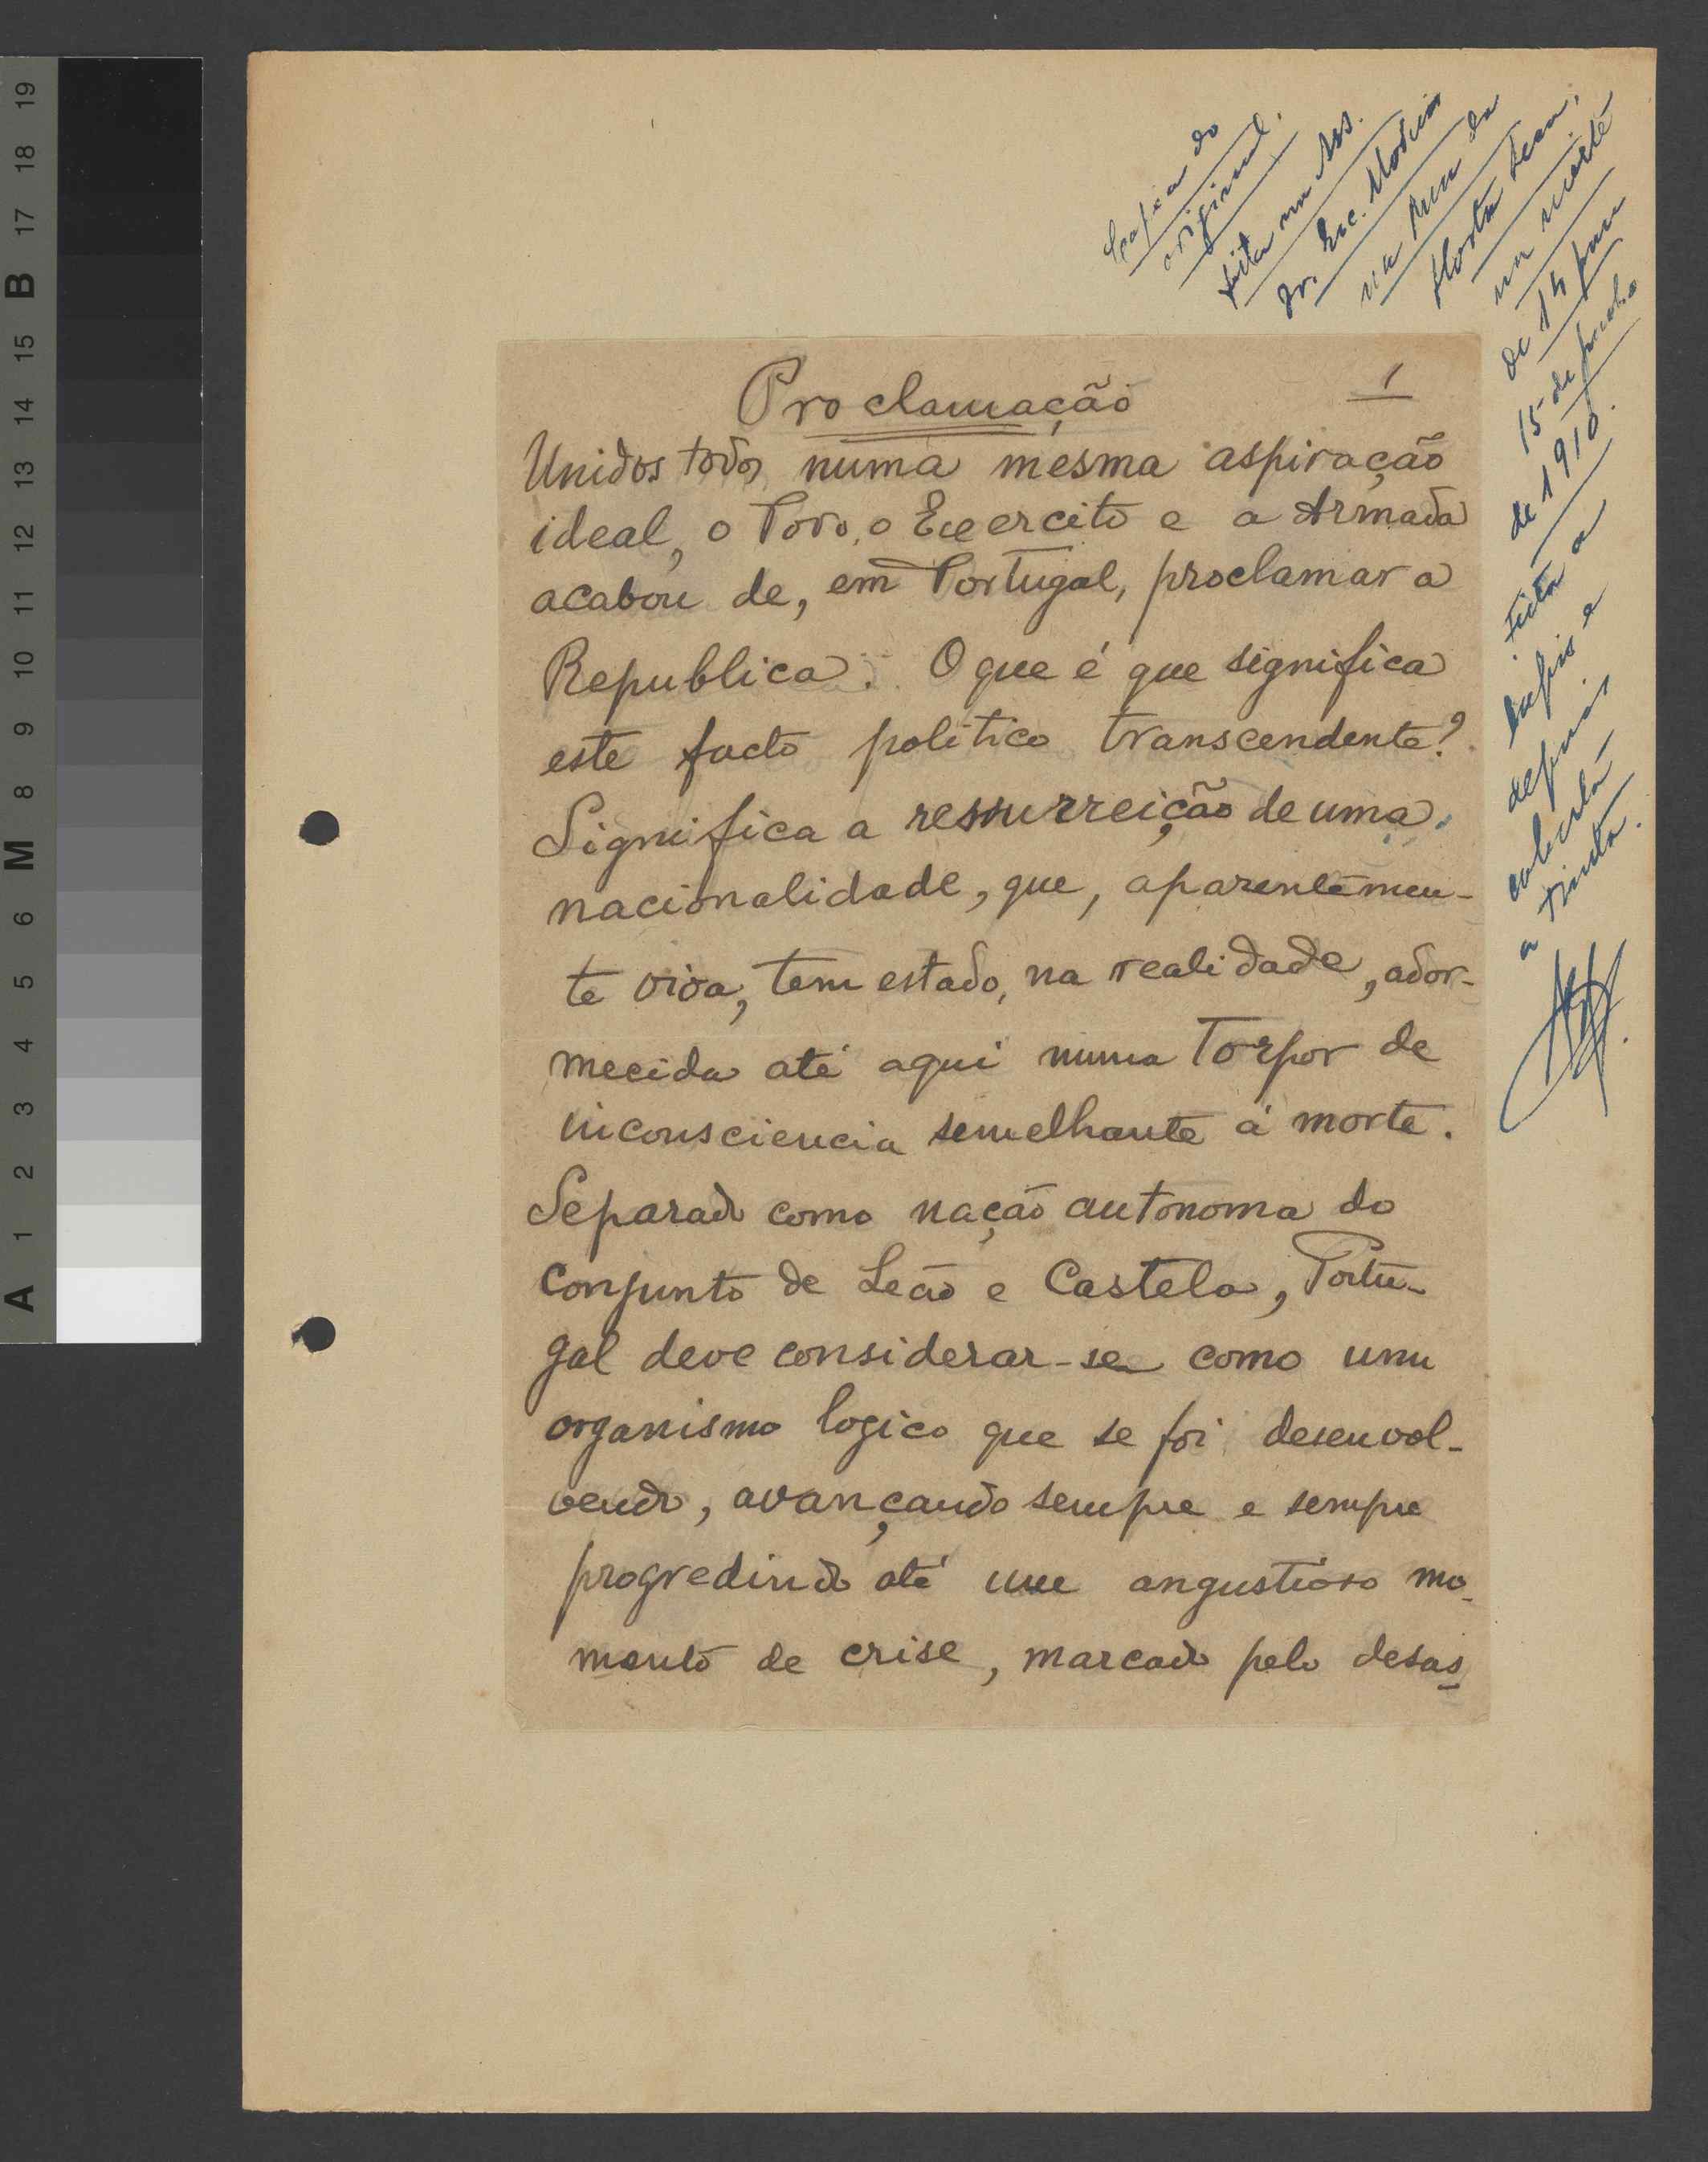 Copia do
original.
feita na Ass.
Dr. Esc. Modern
na Rua da
Horta Seca,
na noite
de 14 para
15 de junho
de 1910.
Feita a
lapis e
depois
coberta
a tinta.
Proclamação
1
Unidos todos numa mesma aspiração
ideal, o Povo, o Exercito e a Armada
acabou de, em Portugal, proclamar a
Republica. O que é que significa
este facto politico transcendente?
Significa a ressurreição de uma
nacionalidade, que, aparentemen-
te viva, tem estado, na realidade, ador-
mecida até aqui numa Torpor de
inconsciencia semelhante á morte.
Separado como nação autonoma do
conjunto de Leão e Castela, Portu-
gal deve considerar-se como um
organismo logico que se foi desenvol-
vendo, avançando sempre e sempre
progredindo até um angustioso mo-
mento de crise, marcado pelo desas-